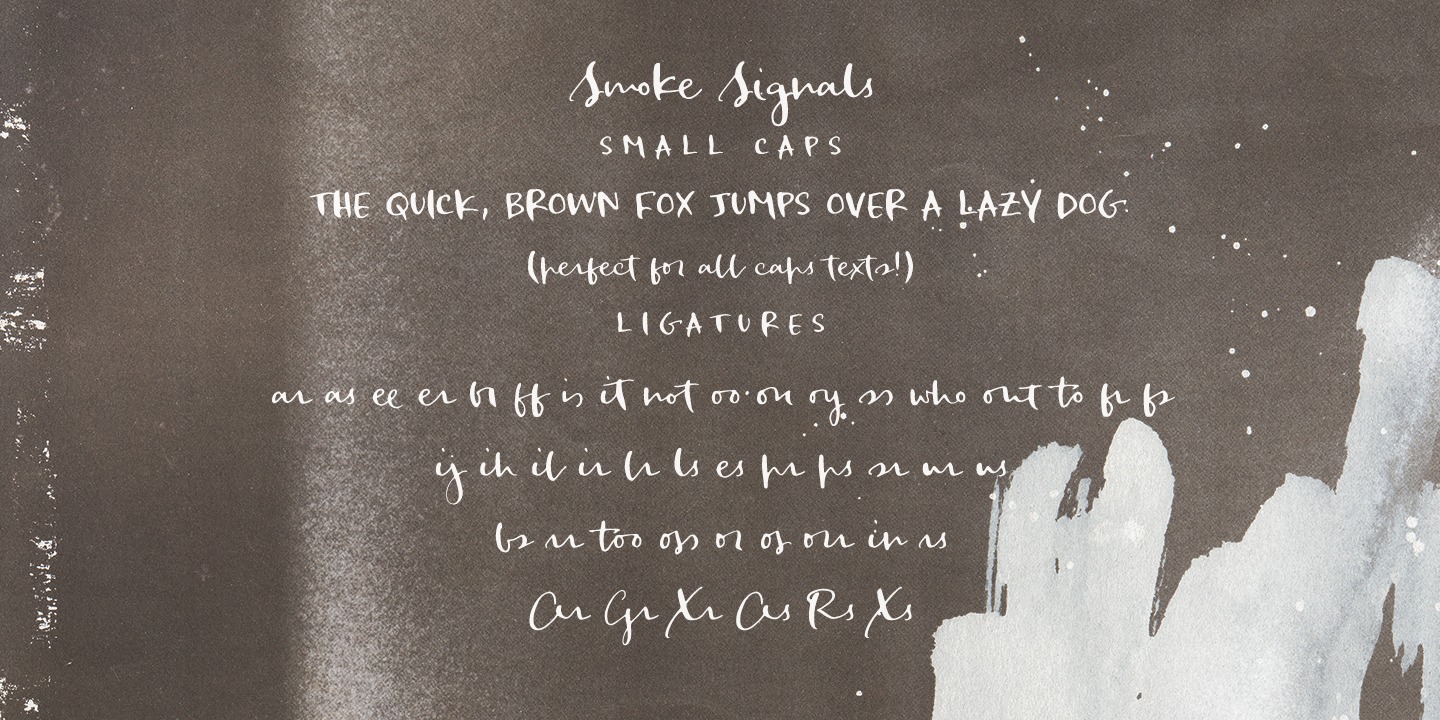 Smoke Signals
SMALL CAPS
THE QUICK, BROWN FOX JUMPS OVER A LAZY DOG.
(perfect for all caps texts!)
LIGATURES
ar as ee er ff is it not oo on oy ss who out to fr fs
ij ih il ir lr ls es pr ps sr ur us
bs rr too of or os our in rs
Cur Gr Xr Cus Rs Xs